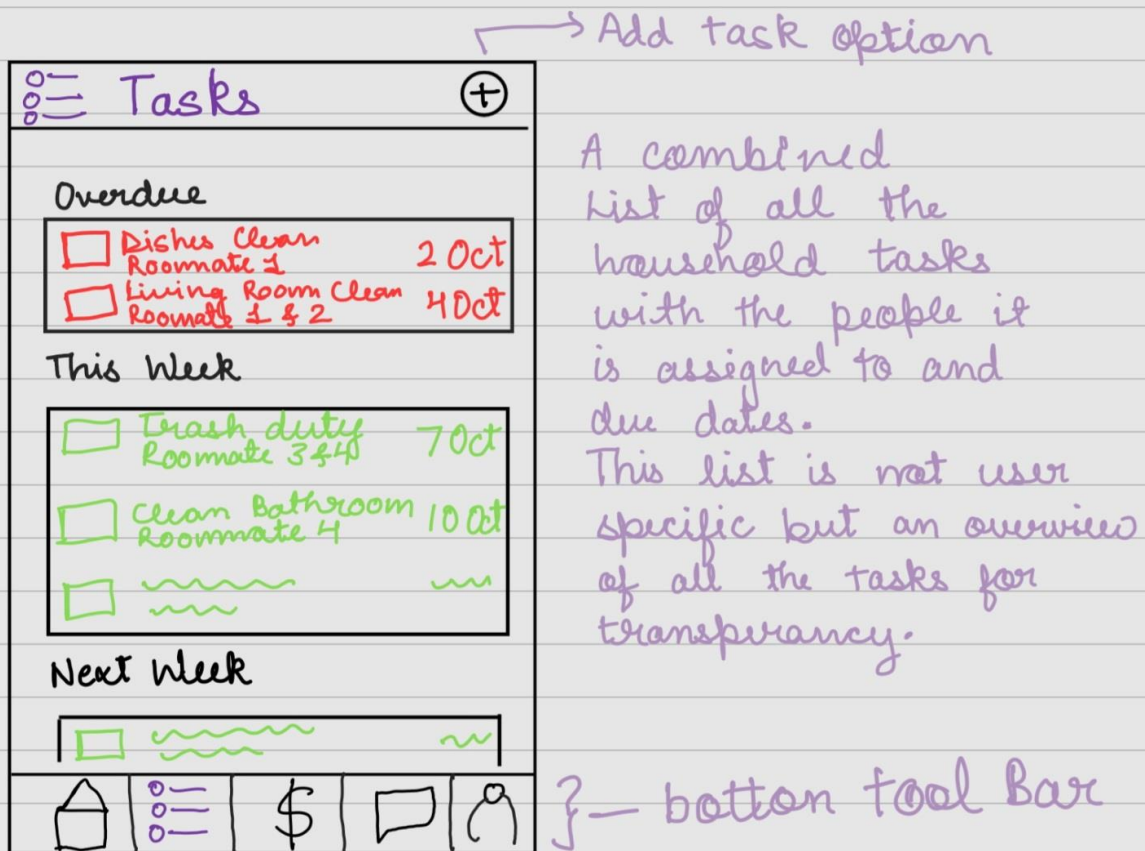 Add task option
Tasks
Overdue
Dishes Clean
Roommate 1
2 Oct
Living Room Clean
Roomate 1 & 2
4 Oct
This Week
Trash duty
Roommate 3 & 4
7 Oct
Clean Bathroom
Roommate 4
10 Oct
Next Week
$
A combined
List of all the
household tasks
with the people it
is assigned to and
due dates.
This list is not user
specific but an overview
of all the tasks for
transpirancy.
botton tool Bar